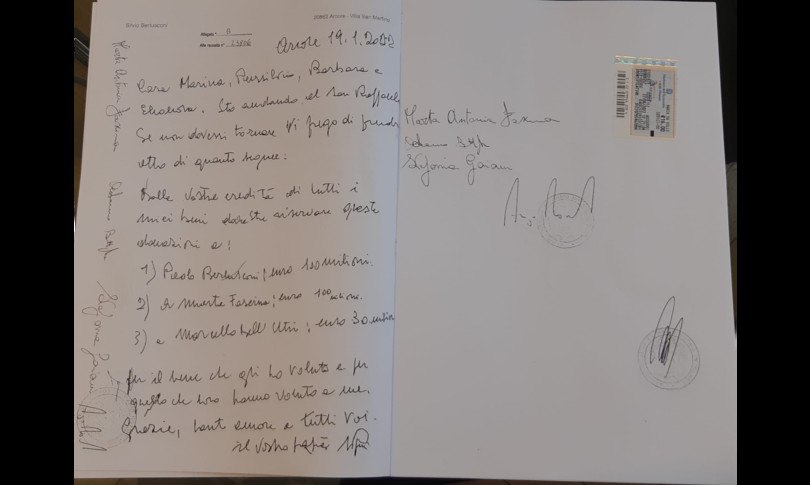 Silvio Berlusconi
20862 Arcore - Villa San Martino
Allegato " B
Alla raccolta n°
Arcore 19.1.2022
Cara Marina, Piersilvio, Barbara e
Eleonora. Sto andando al San Raffaele
Se non dovessi tornare vi prego di prendere
atto di quanto segue:
Dalle vostre eredità di tutti i
miei beni dovreste riservare queste
donazioni a:
1) Paolo Berlusconi; euro 100 milioni.
2) a Marta Fascina; euro 100 milioni.
3) a Marcello Dell'Utri; euro 30 milioni
per il bene che gli ho voluto e per
quello che loro hanno voluto a me.
Grazie, tanto amore a tutti voi.
il vostro papà
Marta Antonia Fascina
Stefania
Marta Antonia Fascina
Stefania
MARCA DA BOLLO
€16,00